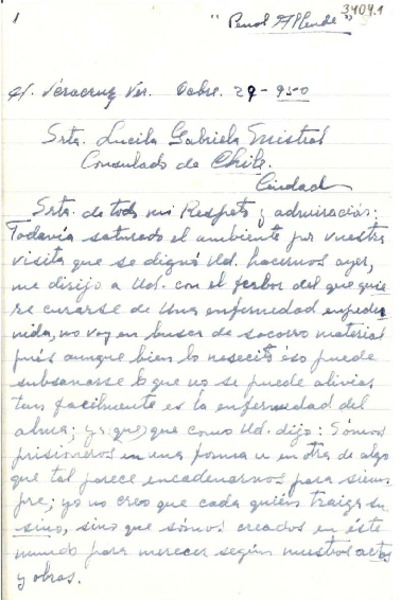 1
"Penal Allende"
3404.1
H. Veracruz Ver. Octbre. 29-950
Srta. Lucila Gabriela Mistral
Consulado de Chile.
Ciudad
Srta. de todo mi Respeto y admiración:
Todavía saturado el ambiente por vuestra
visita que se dignó Ud. hacernos ayer,
me dirijo a Ud. con el ferbor del que quie
re curarse de una enfermedad
nida, no voy en busca de socorro material
pués aunque bien lo nesecito éso puede
subsanarse lo que no se puede aliviar
tan facilmente es la enfermedad del
alma; y que como Ud. dijo: Sómos
prisioneros en una forma u en otra de algo
que tal parece encadenarnos para siem
pre; yo no creo que cada quién traiga su
sino, sino que sómos creados en éste
mundo para merecer según nuestros actos
y obras.